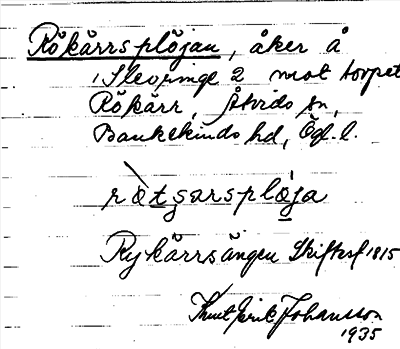 Rökärrsplöjan, åker å
Slevringe 2 mot torpet
Rökärr, Åtvids sn,
Bankekinds hd, Ögl. l.
rötsarsplöja
Rykärrsängen Skiftesl 1815
Knut Erik Johansson
1935